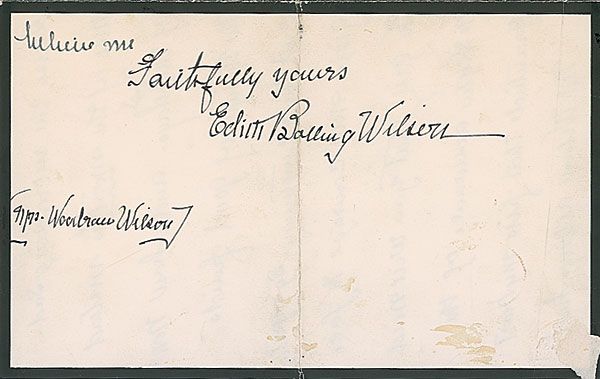 Believe me
Faithfully yours
Edith Bolling Wilson
[Mrs. Woodrow Wilson]